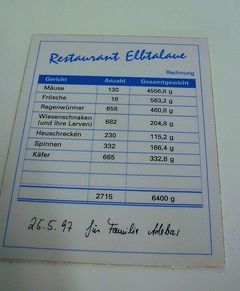 Restaurant Elbtalaue
Rechnung
Gericht Anzahl Gesamtgewicht
Mäuse 130 4556,8 g
Frösche 18 563,2 g
Regenwürmer 658 460,8 g
Wiesenschnaken
(und ihre Larven) 682 204,8 g
Heuschrecken 230 115,2 g
Spinnen 332 166,4 g
Käfer 665 332,8 g
2715 6400 g
25.5.97 für Familie Adebar